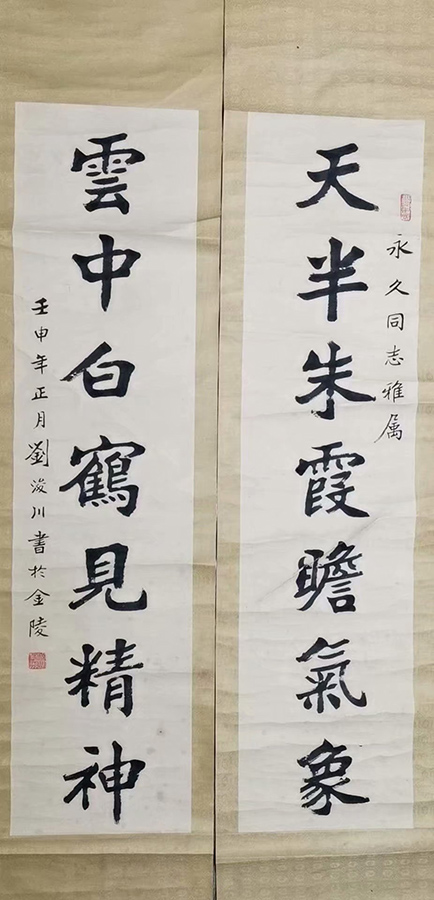 永久同志雅属
天半朱霞瞻氣象
雲中白鶴見精神
壬申年正月劉浚川書於金陵